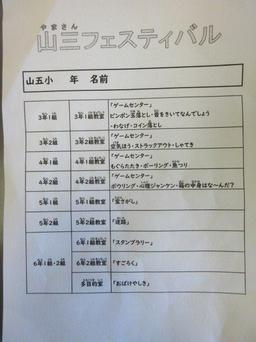 やまさん
山三フェスティバル
山五小 年 名前
3年1組 3年1組教室 「ゲームセンター」
ピンポン玉落とし・音をきいてなんでしょう
・わなげ・コイン落とし
3年2組 3年2組教室 「ゲームセンター」
空気ほう・ストラックアウト・しゃてき
4年1組 4年1組教室 「ゲームセンター」
もぐらたたき・ボーリング・魚つり
4年2組 4年2組教室 「ゲームセンター」
ボウリング・心理ジャンケン・箱の中身はな〜んだ?
5年1組 5年1組教室 「宝さがし」
5年2組 5年2組教室 「迷路」
6年1組・2組 6年1組教室 「スタンプラリー」
6年2組教室 「すごろく」
多目的室 「おばけやしき」